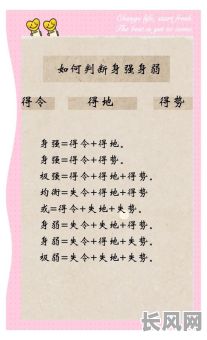 Change life, start fresh.
The best is yet to come.
如何判断身强身弱
得令 得地 得势
身强=得令+得地。
身强=得令+得势。
极强=得令+得地+得势。
均衡=失令+得地+得势
或=得令+失地+失势。
身弱=失令+失地+得势。
身弱=失令+得地+失势。
极弱=失令+失地+失势。
长风网